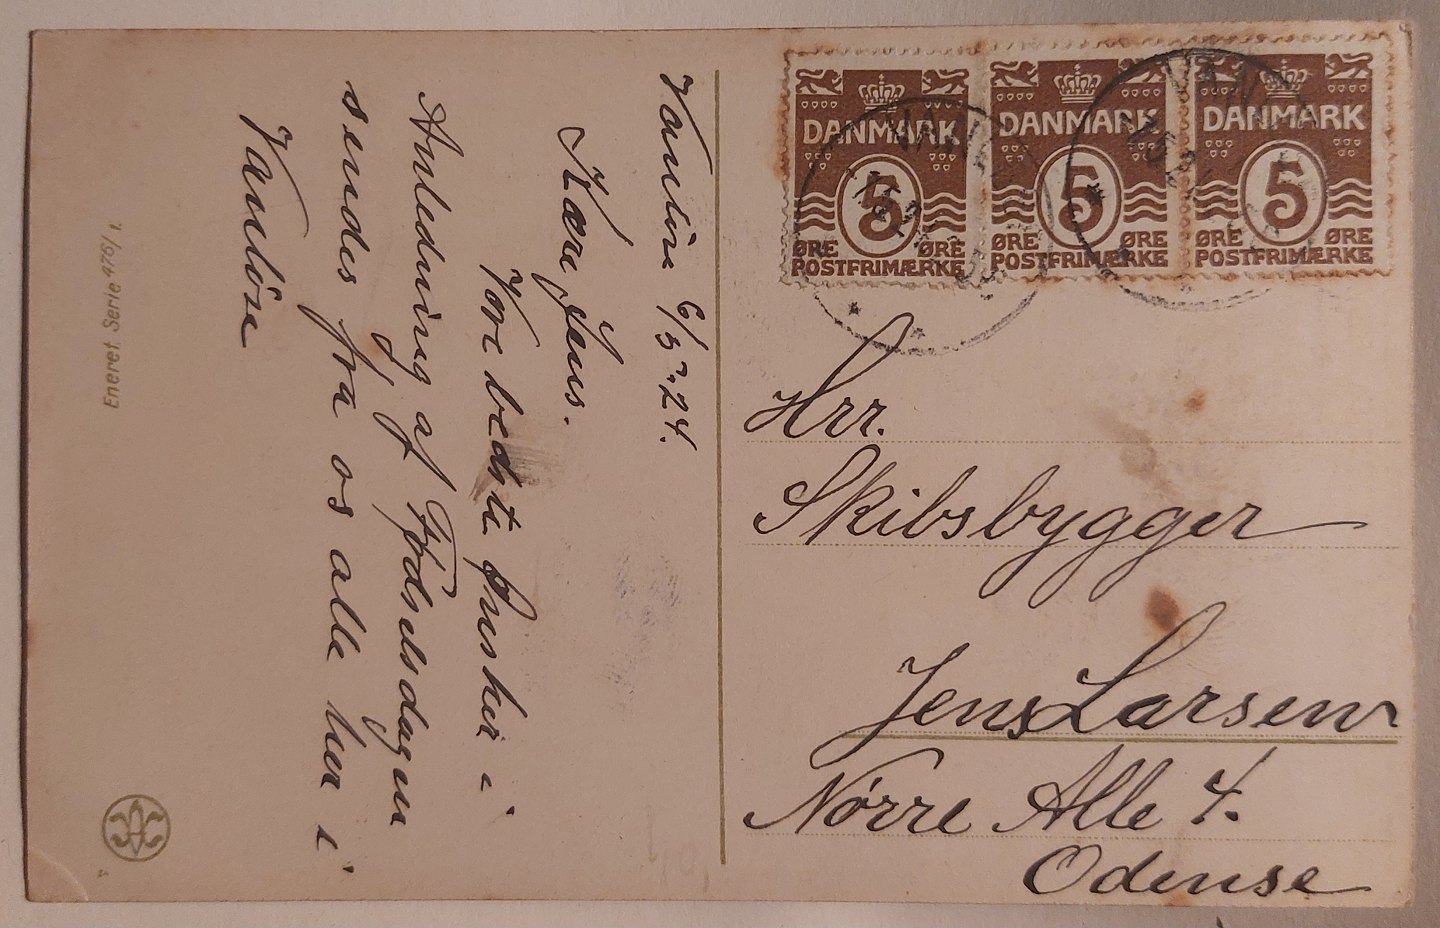 Vanløse 6/5-24.
Kære Jens.
Vore bedste Ønsker i
Anledning af Fødselsdagen
sendes fra os alle her i
Vanløse
Eneret Serie 476/1.
DANMARK
5
ØRE ØRE
POSTFRIMÆRKE
DANMARK
5
ØRE ØRE
POSTFRIMÆRKE
DANMARK
5
ØRE ØRE
POSTFRIMÆRKE
Hrr.
Skibsbygger
Jens Larsen
Nørre Alle 4.
Odense